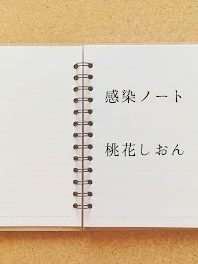 感染ノート
桃花しおん